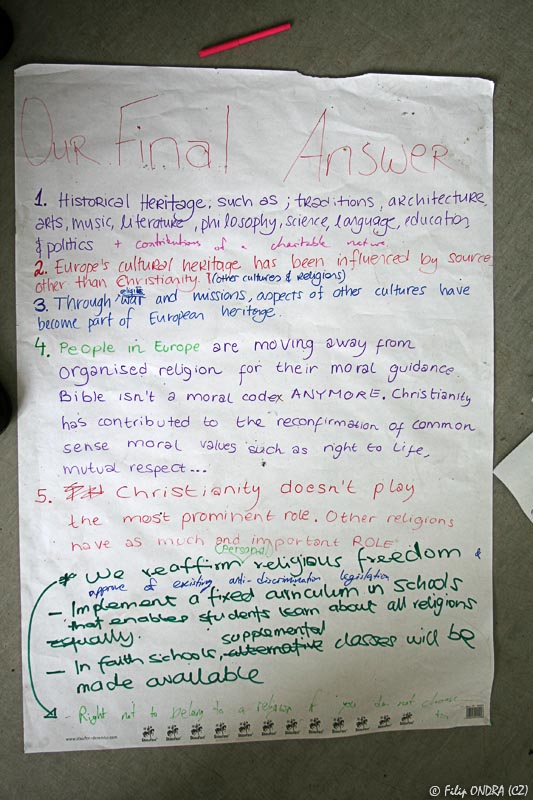 OUR Final Answer
1. Historical Heritage, such as ; traditions, architecture,
arts, music, literature, philosophy, science, language, education,
& politics + contributions of a charitable nature
2. Europe's cultural heritage has been influenced by source
other than Christianity. (other cultures & religions)
3. Through religious war and missions, aspects of other cultures have
become part of European heritage.
4. People in Europe are moving away from
organised religion for their moral guidance.
Bible isn't a moral codex ANYMORE. Christianity
has contributed to the reconfirmation of common
sense moral values such as right to life,
mutual respect...
5. Christianity doesn't play
the most prominent role. Other religions
have as much and important ROLE
(Personal)
* We reaffirm religious freedom &
approve of existing anti-discrimination legislation
- Implement a fixed curriculum in schools
that enables students learn about all religions
equally.
supplemental
- In faith schools, alternative classes will be
made available
- Right not to belong to a religion if you do not choose
to.
© Filip ONDRA (CZ)